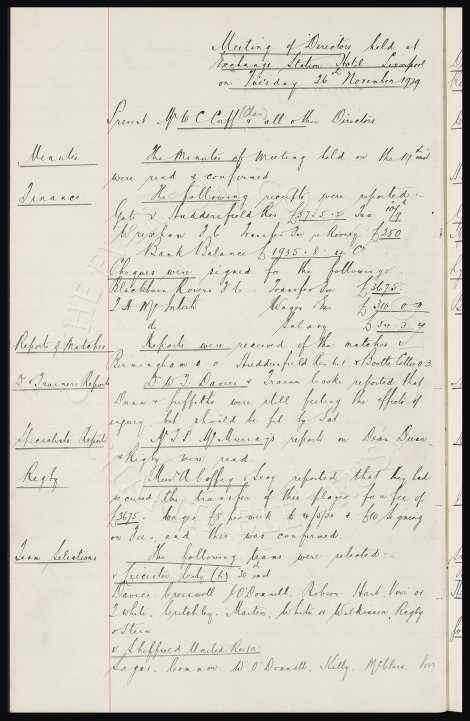 Meeting of Directors held at
Exchange Station Hotel Liverpool
on Tuesday 26th November 1929
Present Mr W C Cuff (Chair) & all other Directors
Minutes
The Minutes of Meeting held on the 19th inst
were read & confirmed
Finance
The following receipts were reported:-
Gate v Huddersfield Res £57-5-2 Tax
Wrexham F.C. Transfer Fee v Rooney £250
Bank Balance £1935-8-4 Cr
Cheques were signed for the following:-
Blackburn Rovers F.C. Transfer Fee £3675
T H McIntosh Wages &c £310 0-0
do Salary £34-3-4
Reports of Matches
Reports were received of the matches v
Birmingham Huddersfield Res & Bootle Celtic 0 3.
Dr & Trainers Reports
Dr W J Davies & Trainer Cooke reported that
Dunn & Griffiths were still feeling the effects of
injury but should be fit by Sat
Specialists Reports
Mr T P McMurray's reports on Dean Dunn
& Rigby were read
Rigby
Messrs A Coffey & Leay reported that they had
secured the transfer of this player for a fee of
£3675. Wages £8 per week to 4/5/30 & £10 signing
on Fee, and this was confirmed.
Team Selections
The following teams were selected:-
v Leicester City (h) 30th inst
Davies. Cresswell J O'Donnell, Robson Hart. Voir or
T White. Critchley. Martin, White or Wilkinson, Rigby
& Stein
v Sheffield United Res (a)
Sagar. Common. W O'Donnell. Kelly. McClure. Voir